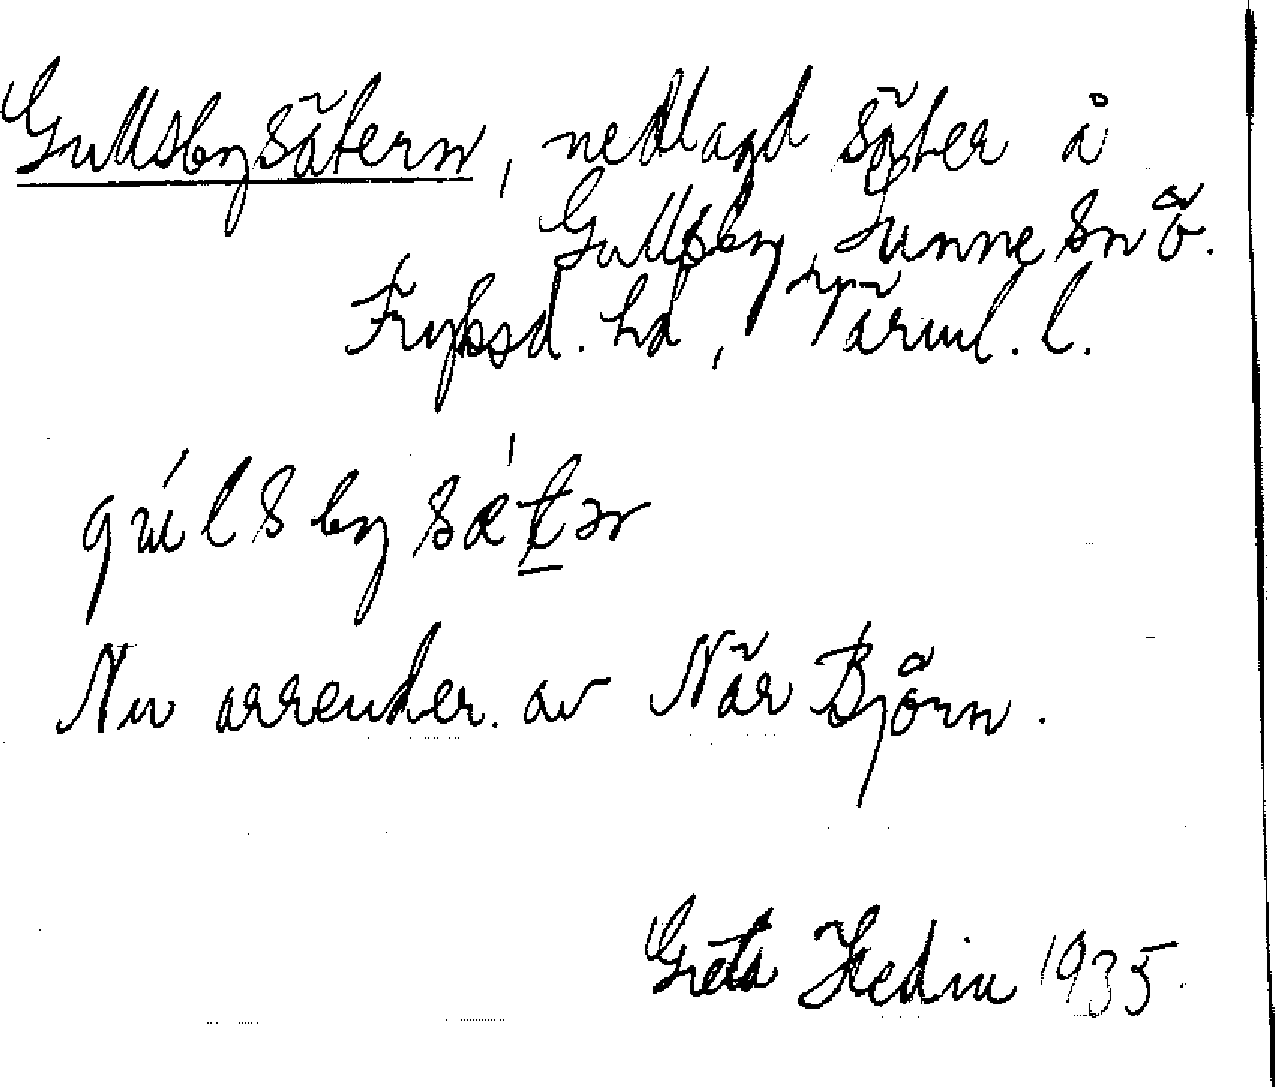 Gullsbysätern, nedlagd säter å
Gullsby, Sunne sn Ö.
Fryksd. hd, Värml. l.
gúlsbysǽtər
Nu arrender. av När Björn.
Greta Hedin 1935.